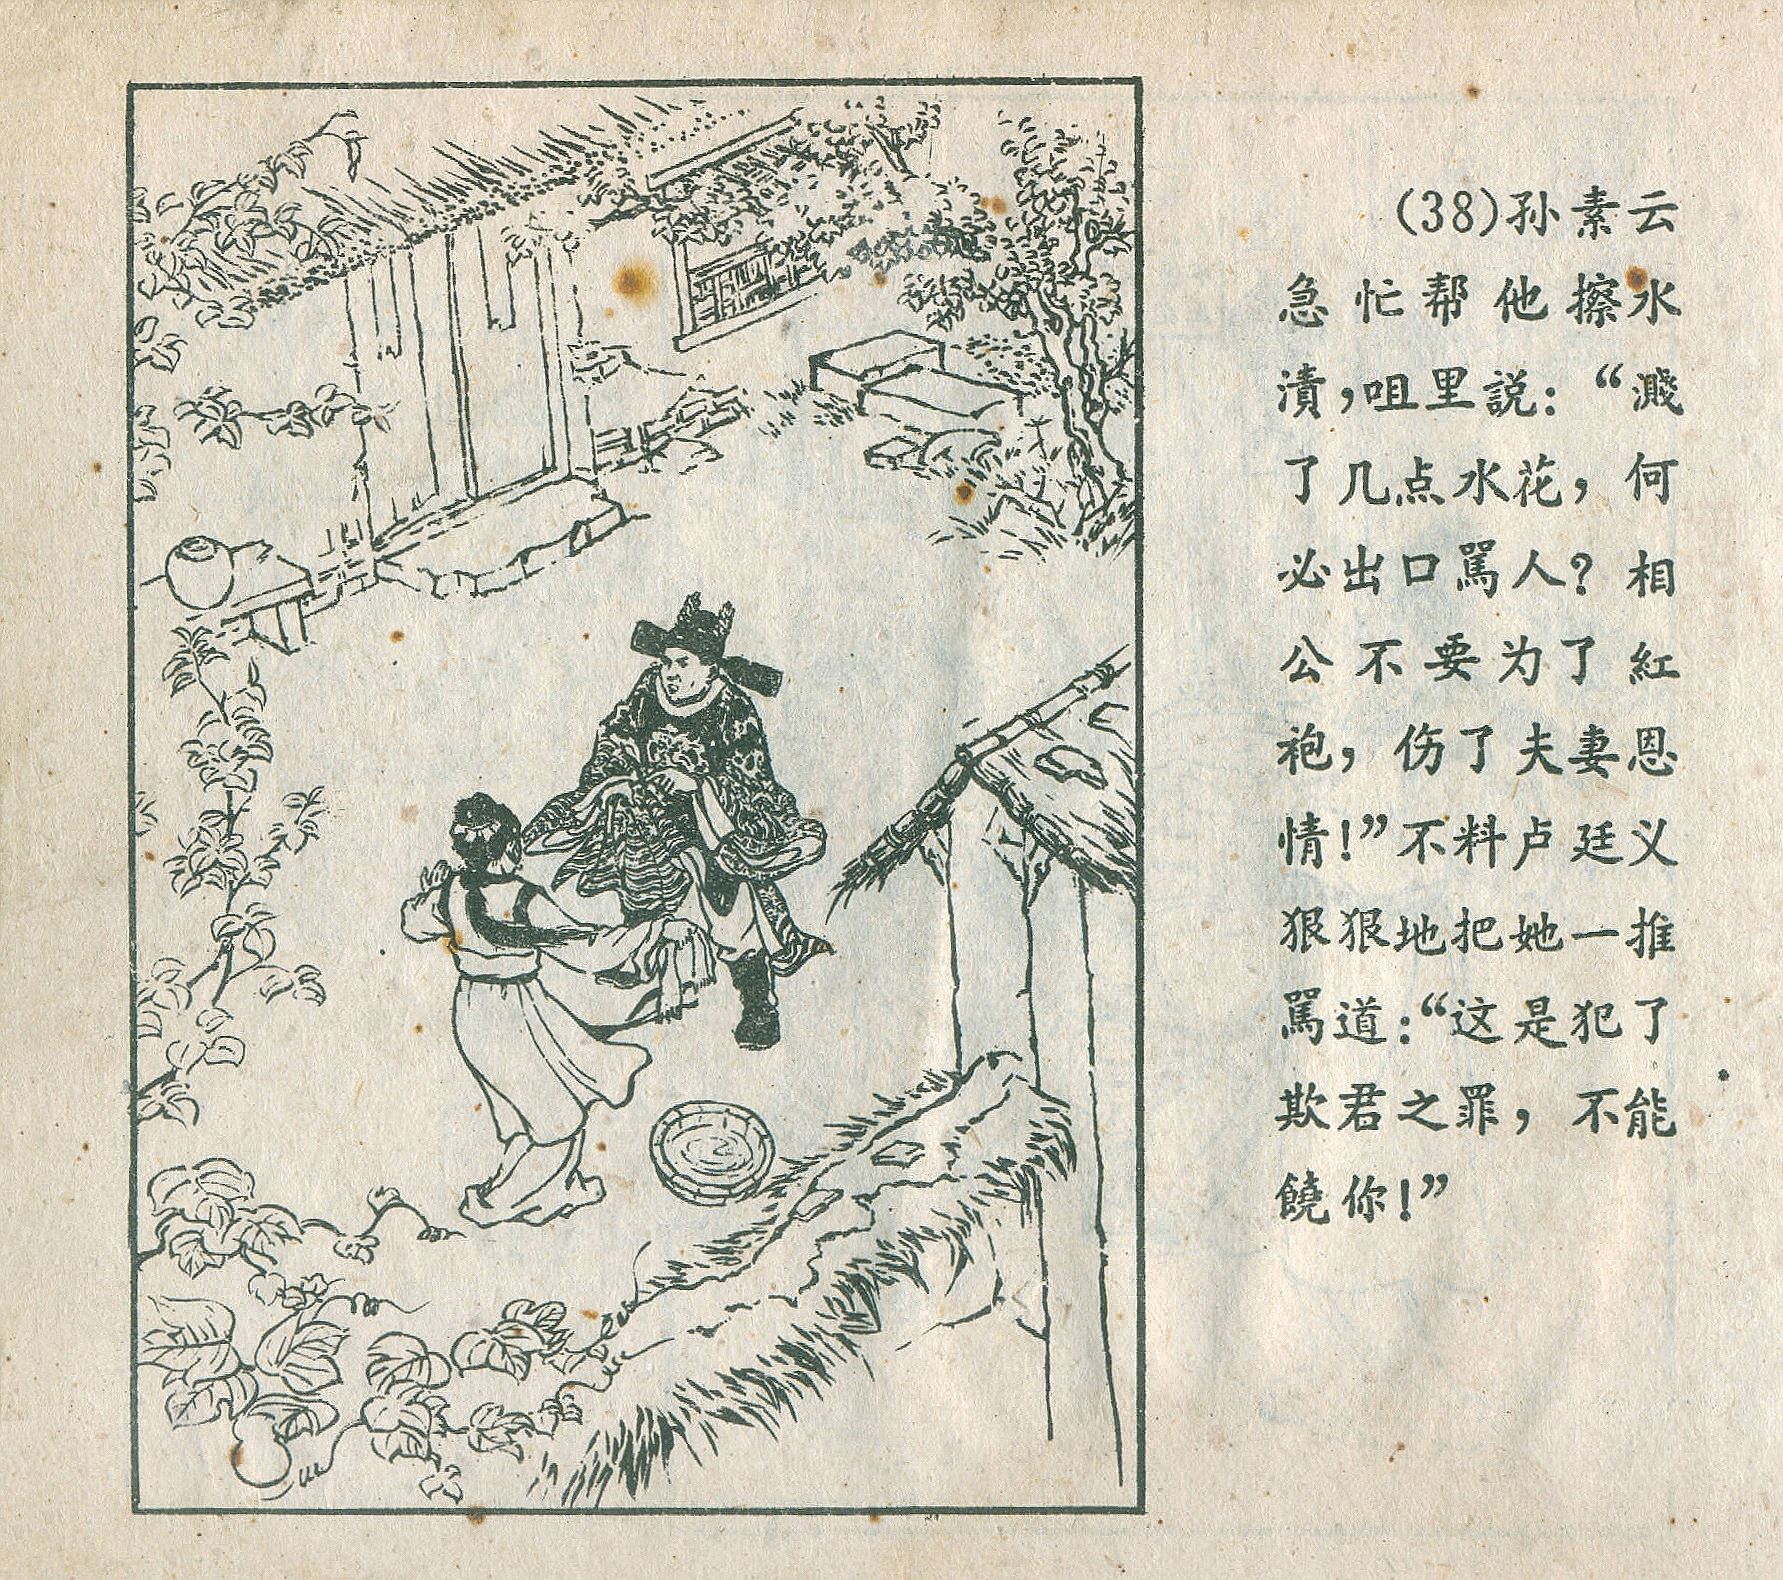 (38)孙素云
急忙帮他擦水
渍，咀里説：“濺
了几点水花，何
必出口駡人？相
公不要为了紅
袍，伤了夫妻恩
情！”不料卢廷义
狠狠地把她一推
駡道：“这是犯了
欺君之罪，不能
饒你！”